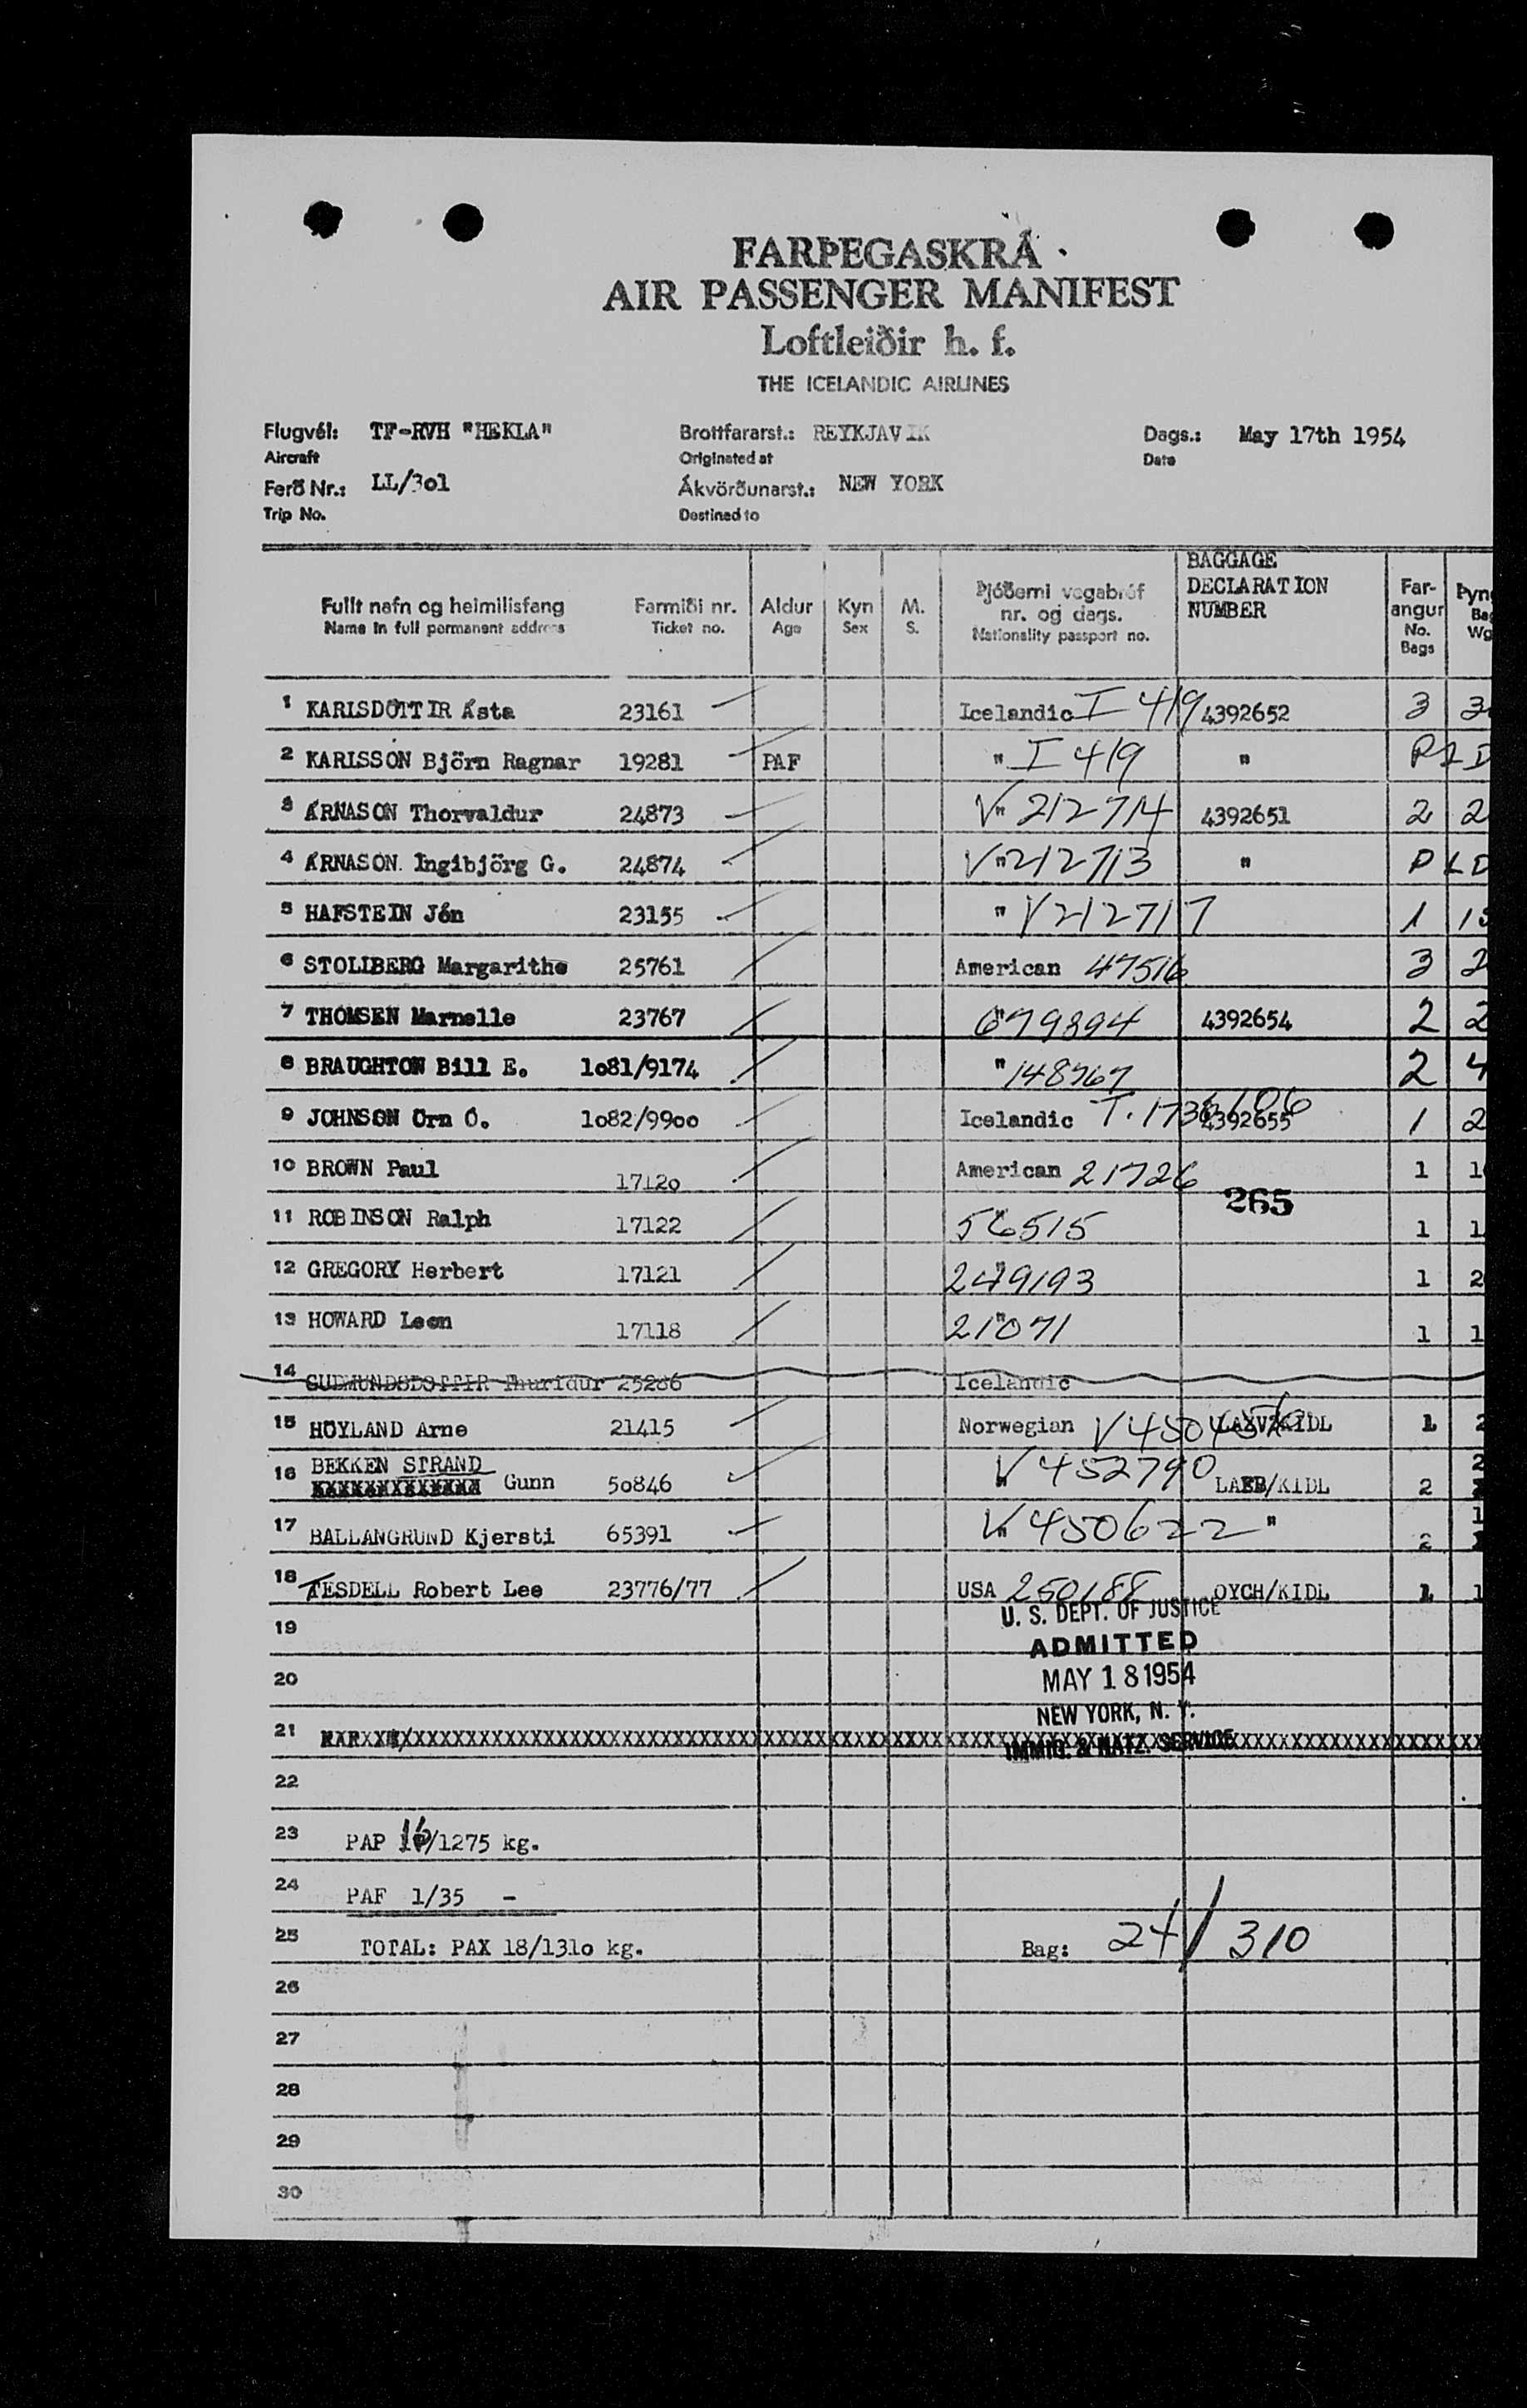 FARÞEGASKRÁ
AIR PASSENGER MANIFEST
Loftleiðir h. f.
THE ICELANDIC AIRLINES
Flugvél: TF-RVH "HEKLA" Brottfararst.: REYKJAVIK Dags.: May 17th 1954
Aircraft Originated at Date
Ferð Nr.: LL/3o1 Ákvörðunarst.: NEW YORK
Trip No. Destined to
Fullt nafn og heimilisfang Farmiði nr. Aldur Kyn M. Þjóðerni vegabréf nr. og dags. BAGGAGE DECLARATION NUMBER Far-angur
Name in full permanent address Ticket no. Age Sex S. Nationality passport no. No. Bags Wg
1 KARLSDÓTTIR Ásta 23161 Icelandic I 419 4392652 3
2 KARLSSON Björn Ragnar 19281 PAF " I 419 "
3 ÁRNASON Thorvaldur 24873 V " 212714 4392651 2 2
4 ÁRNASON Ingibjörg G. 24874 V " 212713 "
5 HAFSTEIN Jón 23155 " V212717 1
6 STOLLBERG Margarithe 25761 American 47516 3 2
7 THOMSEN Marnelle 23767 " 679894 4392654 2 2
8 BRAUGHTON Bill E. 1o81/9174 " 148767 2 4
9 JOHNSON Orn O. 1o82/99oo Icelandic T. 1736106 4392655 1 2
10 BROWN Paul 1712o American 21726 1 1
265
11 ROBINSON Ralph 17122 " 56515 1 1
12 GREGORY Herbert 17121 " 249193 1 2
13 HOWARD Leon 17118 " 21071 1 1
14 GUDMUNDSDOTTIR Thuridur 25286 Icelandic
15 HÖYLAND Arne 21415 Norwegian 1 2
BEKKEN STRAND
16 XXXXXXXXXXXXX Gunn 5o846 " V 452790 /KIDL 2
17 BALLANGRUND Kjersti 65391 " V 450622 " 2
18 TESDELL Robert Lee 23776/77 USA 250188 OYCH/KIDL 1 1
U. S. DEPT. OF JUSTICE
19
ADMITTED
20 MAY 18 1954
NEW YORK, N. Y.
21
IMMIG. & NATZ. SERVICE
22
23 PAP 16/1275 kg.
24 PAF 1/35 -
25 TOTAL: PAX 18/131o kg. Bag: 24/310
26
27
28
29
30